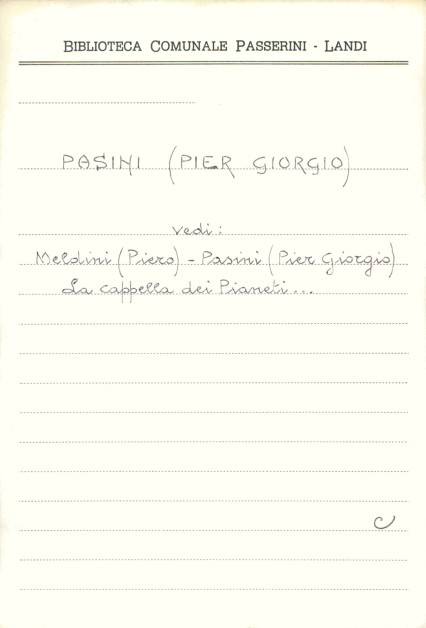 BIBLIOTECA COMUNALE PASSERINI - LANDI
PASINI (PIER GIORGIO)
vedi:
Meldini (Piero) - Pasini (Pier Giorgio)
La cappella dei Pianeti...
C